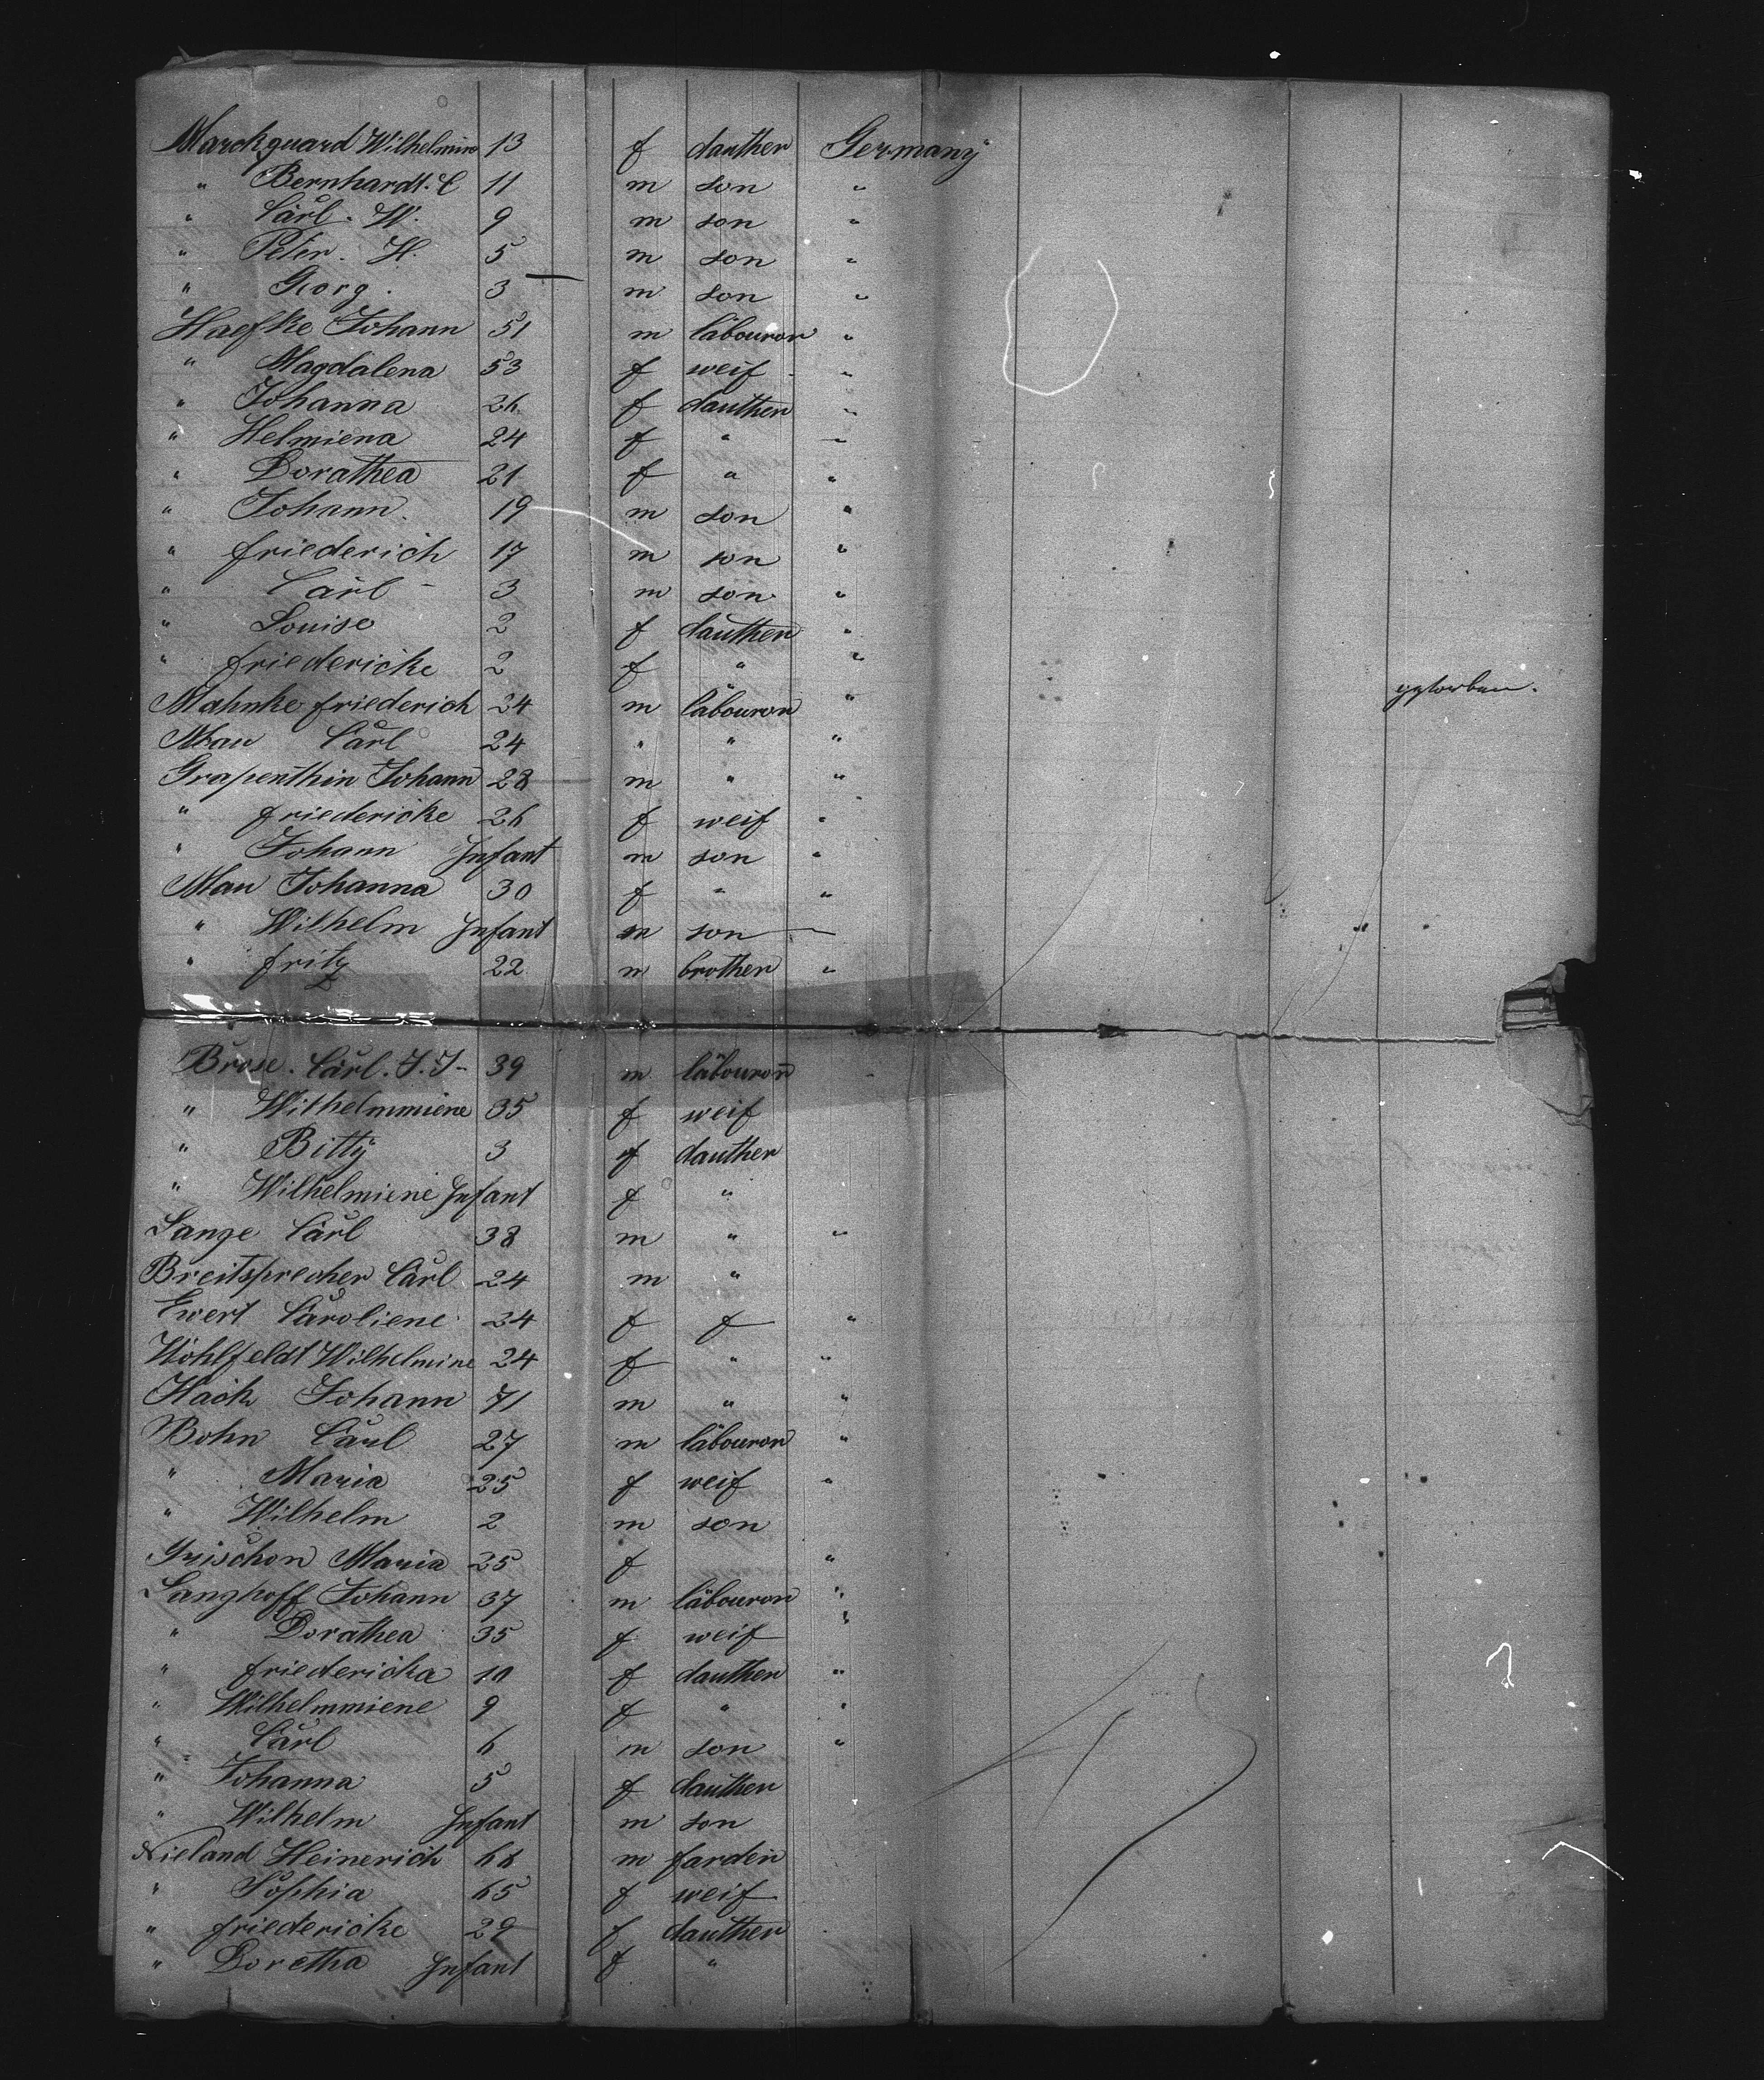 Marckquard Wilhelmine 13 f dauther Germany
" Bernhardt. C 11 m son "
" Carl. W. 9 m son "
" Peter. H. 5 m son "
" Georg. 3 m son "
Haefke Johann 51 m läbouror "
" Magdalena 53 f weif "
" Johanna 26 f dauther "
" Helmiena 24 f " "
" Dorathea 21 f " "
" Johann. 19 m son "
" friederich 17 m son "
" Carl 3 m son "
" Louise 2 f dauther "
" friedericke 2 f " "
Mahnke friederich 24 m läbouror " gestorben.
Mau Carl 24 " " "
Grapenthin Johann 28 m " "
" friedericke 26 f weif "
" Johann Infant m son "
Mau Johanna 30 f " "
" Wilhelm Infant m son
" fritz 22 m brother "
Brose. Carl. J. J- 39 m läbouror
" Wilhelmmiene 35 f weif
" Bitty 3 f dauther
" Wilhelmiene Infant f "
Lange Carl 38 m " "
Breitsprecher Carl 24 m "
Ewert Caroliene 34 f f "
Wöhlfeldt Wilhelmine 24 f " "
Hack Johann 71 m " "
Bohn Carl 27 m läbouror "
" Maria 25 f weif "
" Wilhelm 2 m son
Grischon Maria 25 f "
Langhoff Johann 37 m läbouror "
" Dorathea 35 f weif "
" friedericka 10 f dauther "
" Wilhelmmiene 9 f " "
" Carl 6 m son "
" Johanna 5 f dauther
" Wilhelm Infant m son
Nieland Heinerich 66 m farden
" Sophia 65 f weif
" friedericke 29 f dauther
" Doretha Infant f "